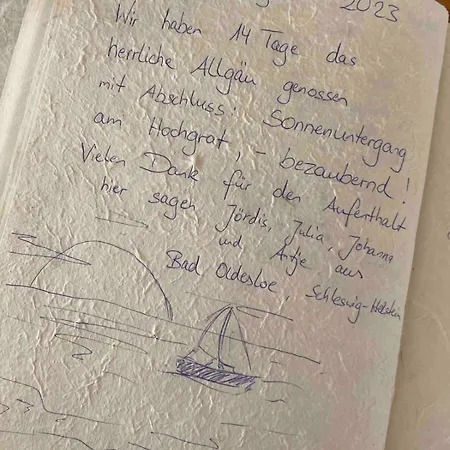 2023
Wir haben 14 Tage das
herrliche Allgäu genossen
mit Abschluss: Sonnenuntergang
am Hochgrat, - bezaubernd!
Vielen Dank für den Auferthalt
hier sagen Jördis, Julia, Johanna
und Antje aus
Bad Oldesloe, Schleswig-Holstein